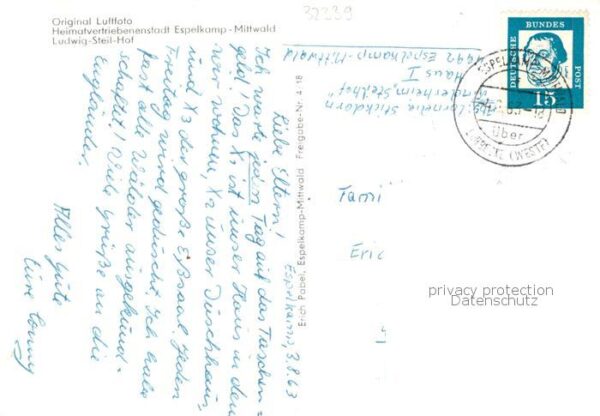 32239
Original Luftfoto
Heimatvertriebenenstadt Espelkamp-Mittwald
Ludwig-Steil-Hof
Espelkamp, 3.8.63
Liebe Eltern!
Ich warte jeden Tag auf das Taschen=
geld! Das X1 ist unser Haus in dem
wir wohnen, X2 unser Duschhaus,
und X3 der große Eßsaal. Jeden
Freitag wird geduscht. Ich habe
fast alle Wälder ausgekund-
schaftet! Viele Grüße an die
Engländer.
Alles Gute
Eure Conny
Erich Pabel, Espelkamp-Mittwald Freigabe-Nr. 4/18
Abs. Cornelia Stickdorn
Kinderheim "Steilhof"
Haus I
4992 Espelkamp-Mittwald
DEUTSCHE BUNDESPOST
15
ESPELKAMP-MITTWALD
über
LÜBBECKE (WESTF)
Fami
Eric
privacy protection
Datenschutz